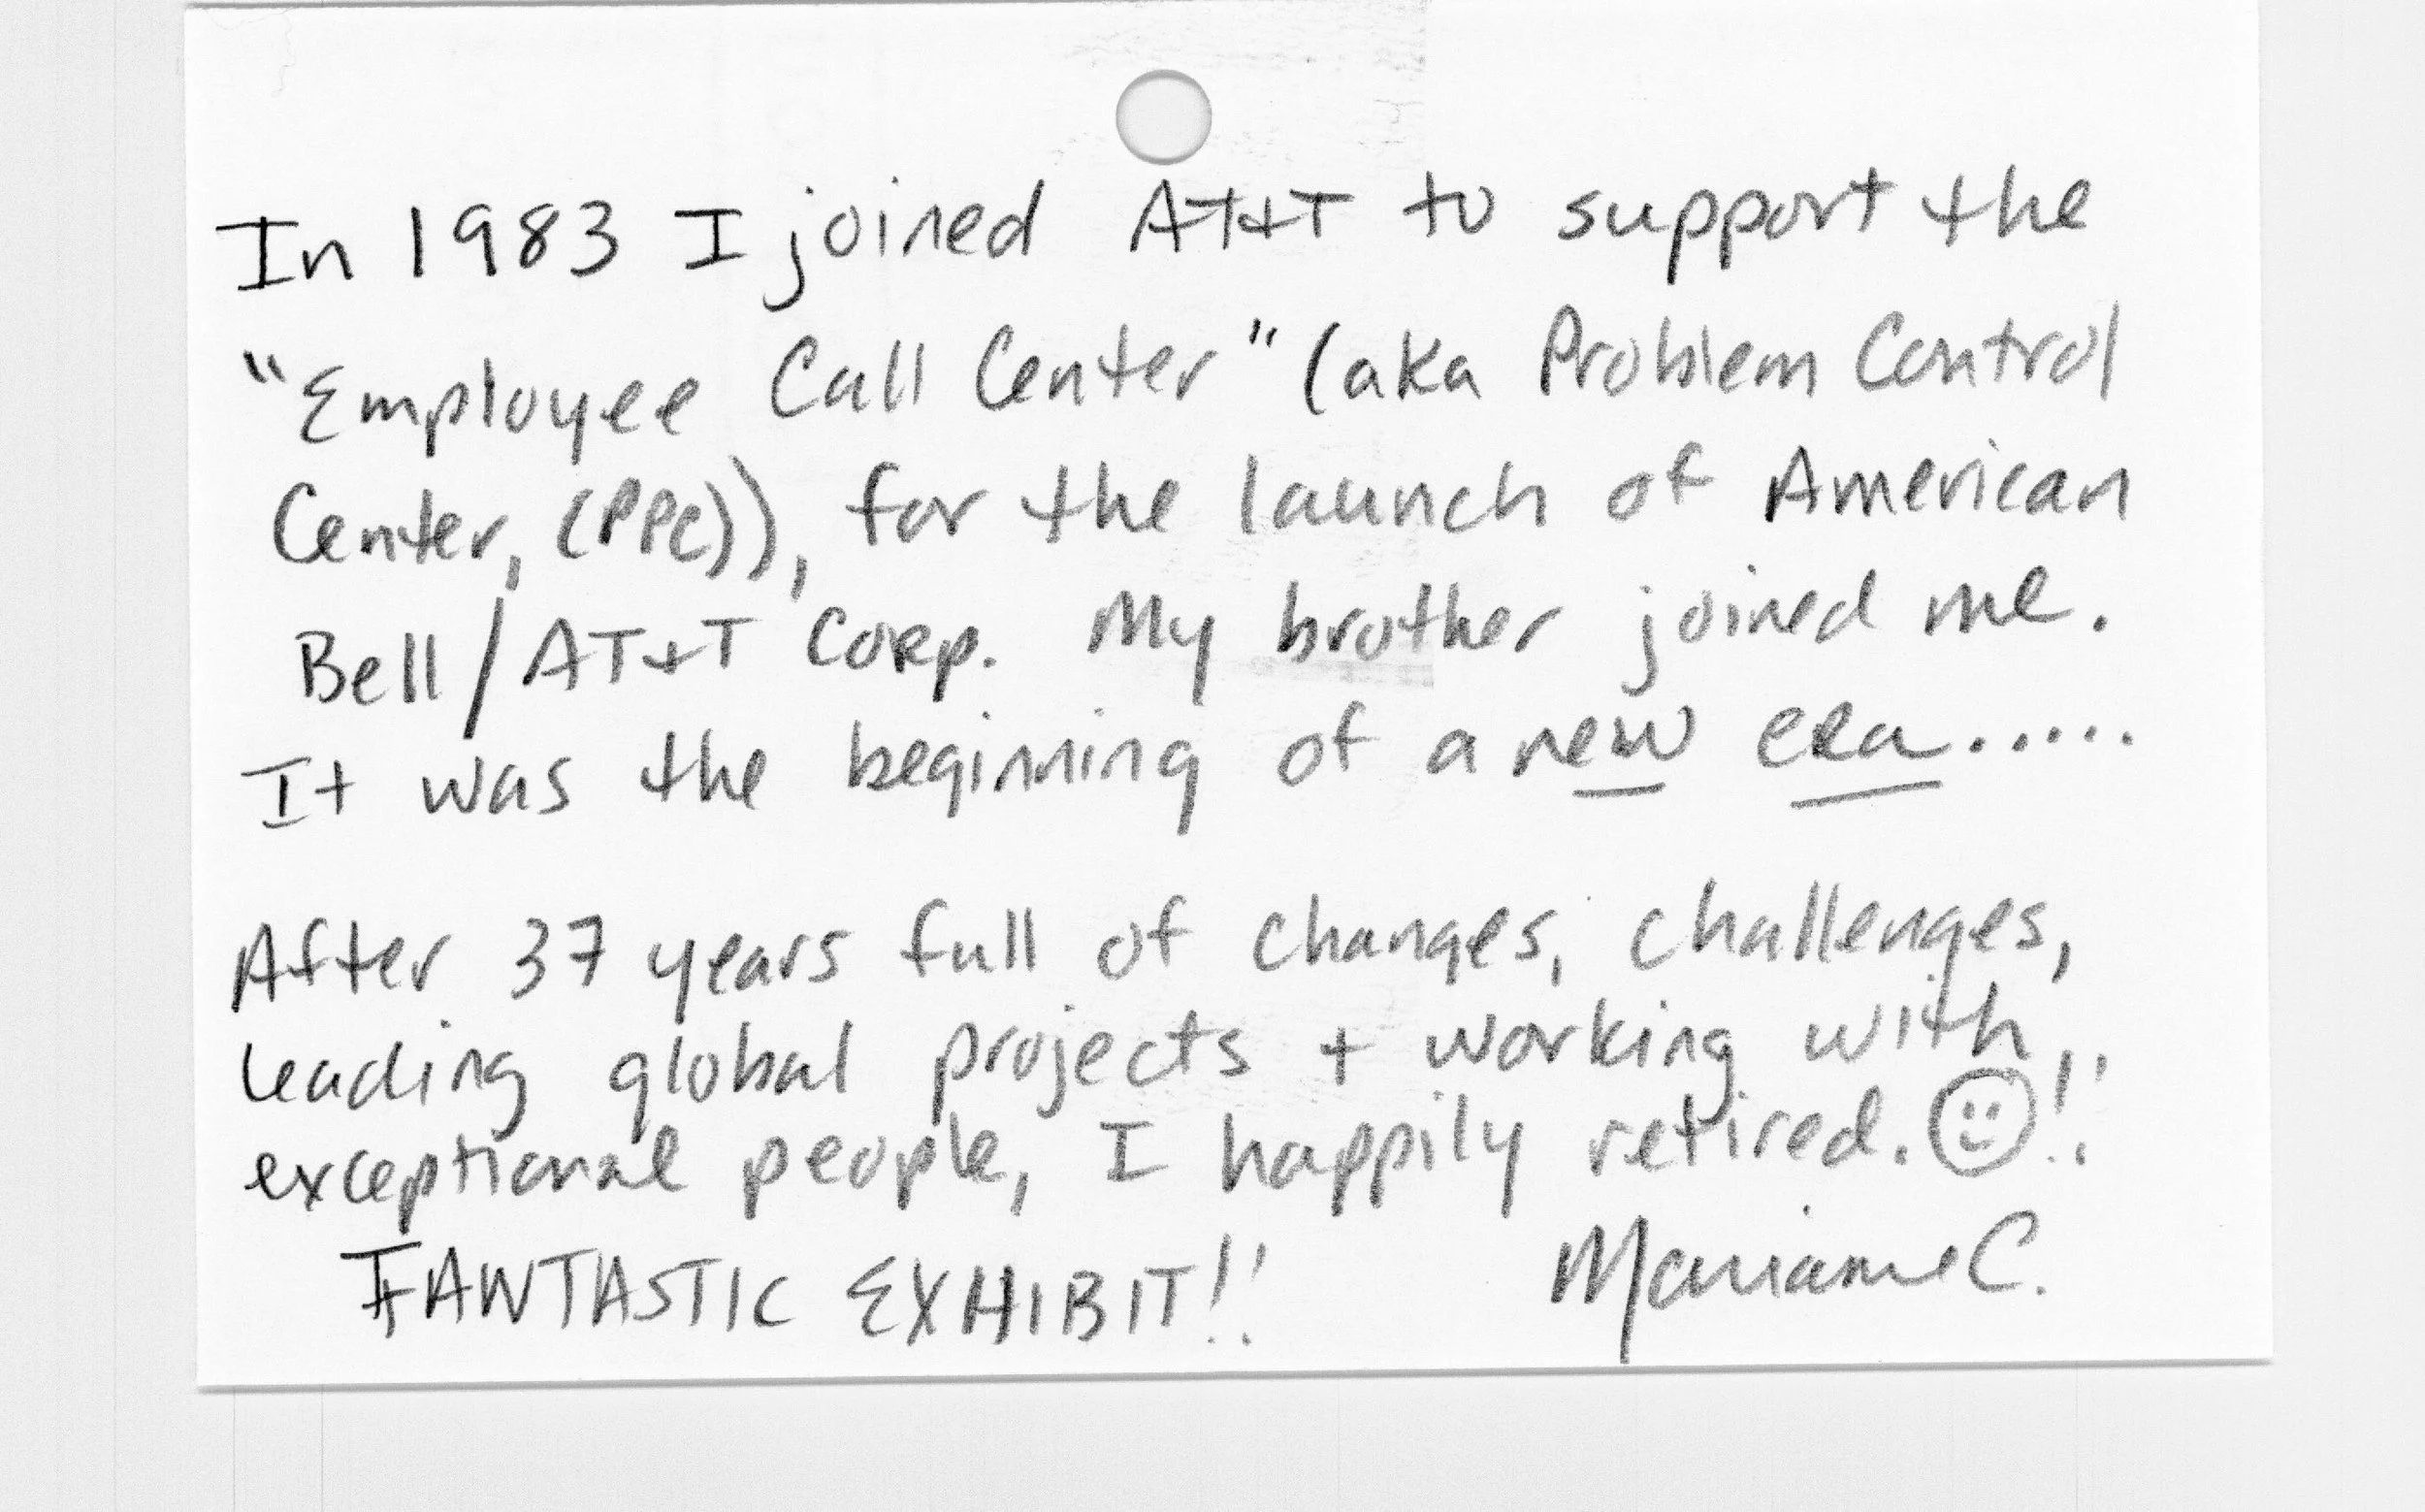 In 1983 I joined AT+T to support the
"Employee Call Center" (aka Problem Control
Center, (PPC)), for the launch of American
Bell/AT+T Corp. My brother joined me.
It was the beginning of a new era.....
After 37 years full of changes, challenges,
leading global projects + working with
exceptional people, I happily retired. ☺!!
FANTASTIC EXHIBIT!! Marianne C.